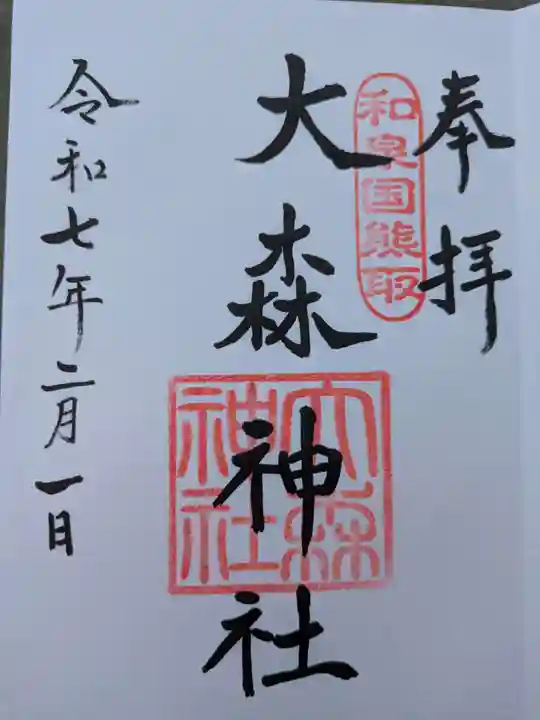 奉拝
和泉国熊取
大森神社
大森
神社
令和七年二月一日